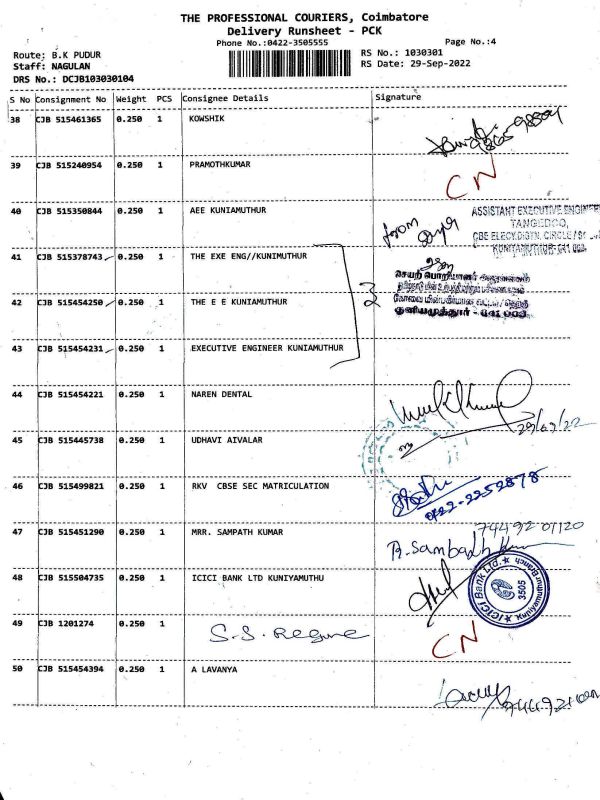 THE PROFESSIONAL COURIERS, Coimbatore
Delivery Runsheet - PCK
Phone No.:0422-3505555
Page No.:4
Route: B.K PUDUR
RS No.: 1030301
Staff: NAGULAN
RS Date: 29-Sep-2022
DRS No.: DCJB103030104
S No Consignment No Weight PCS Consignee Details Signature
38 CJB 515461365 0.250 1 KOWSHIK
39 CJB 515240954 0.250 1 PRAMOTHKUMAR CN
40 CJB 515350844 0.250 1 AEE KUNIAMUTHUR
ASSISTANT EXECUTIVE ENGINEER
TANGEDCO,
CBE ELECY.DISTN. CIRCLE/
KUNIYAMUTHUR-641 008.
41 CJB 515378743 0.250 1 THE EXE ENG//KUNIMUTHUR
செயற் பொறியாளர் அலுவலகம்
42 CJB 515454250 0.250 1 THE E E KUNIAMUTHUR 3
குனியமுத்தூர் - 641 008
43 CJB 515454231 0.250 1 EXECUTIVE ENGINEER KUNIAMUTHUR
44 CJB 515454221 0.250 1 NAREN DENTAL
29/09/22
45 CJB 515445738 0.250 1 UDHAVI AIVALAR
46 CJB 515499821 0.250 1 RKV CBSE SEC MATRICULATION
0422-2252878
47 CJB 515451290 0.250 1 MRR. SAMPATH KUMAR
7449201120
R. Sambath Kumar
48 CJB 515504735 0.250 1 ICICI BANK LTD KUNIYAMUTHU
ICICI Bank Ltd. ★ Kuniyamuthur Branch ★
3505
49 CJB 1201274 0.250 1 S.S. Regune CN
50 CJB 515454394 0.250 1 A LAVANYA